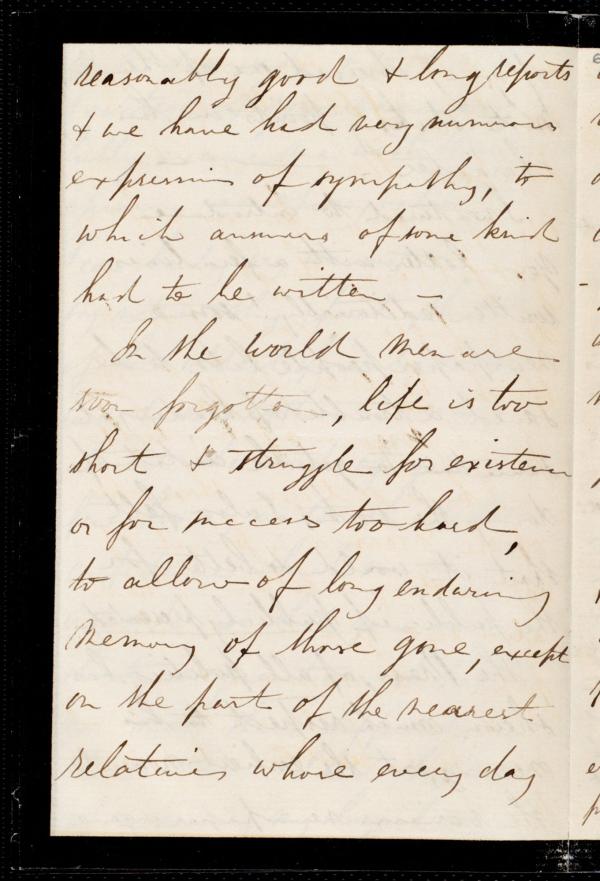 reasonably good & long reports
& we have had very numerous
expressions of sympathy, to
which answers of some kind
had to be written —
In the world men are
soon forgotten, life is too
short & struggle for existence
or for success too hard,
to allow of long enduring
memory of those gone, except
on the part of the nearest
relatives whose every day